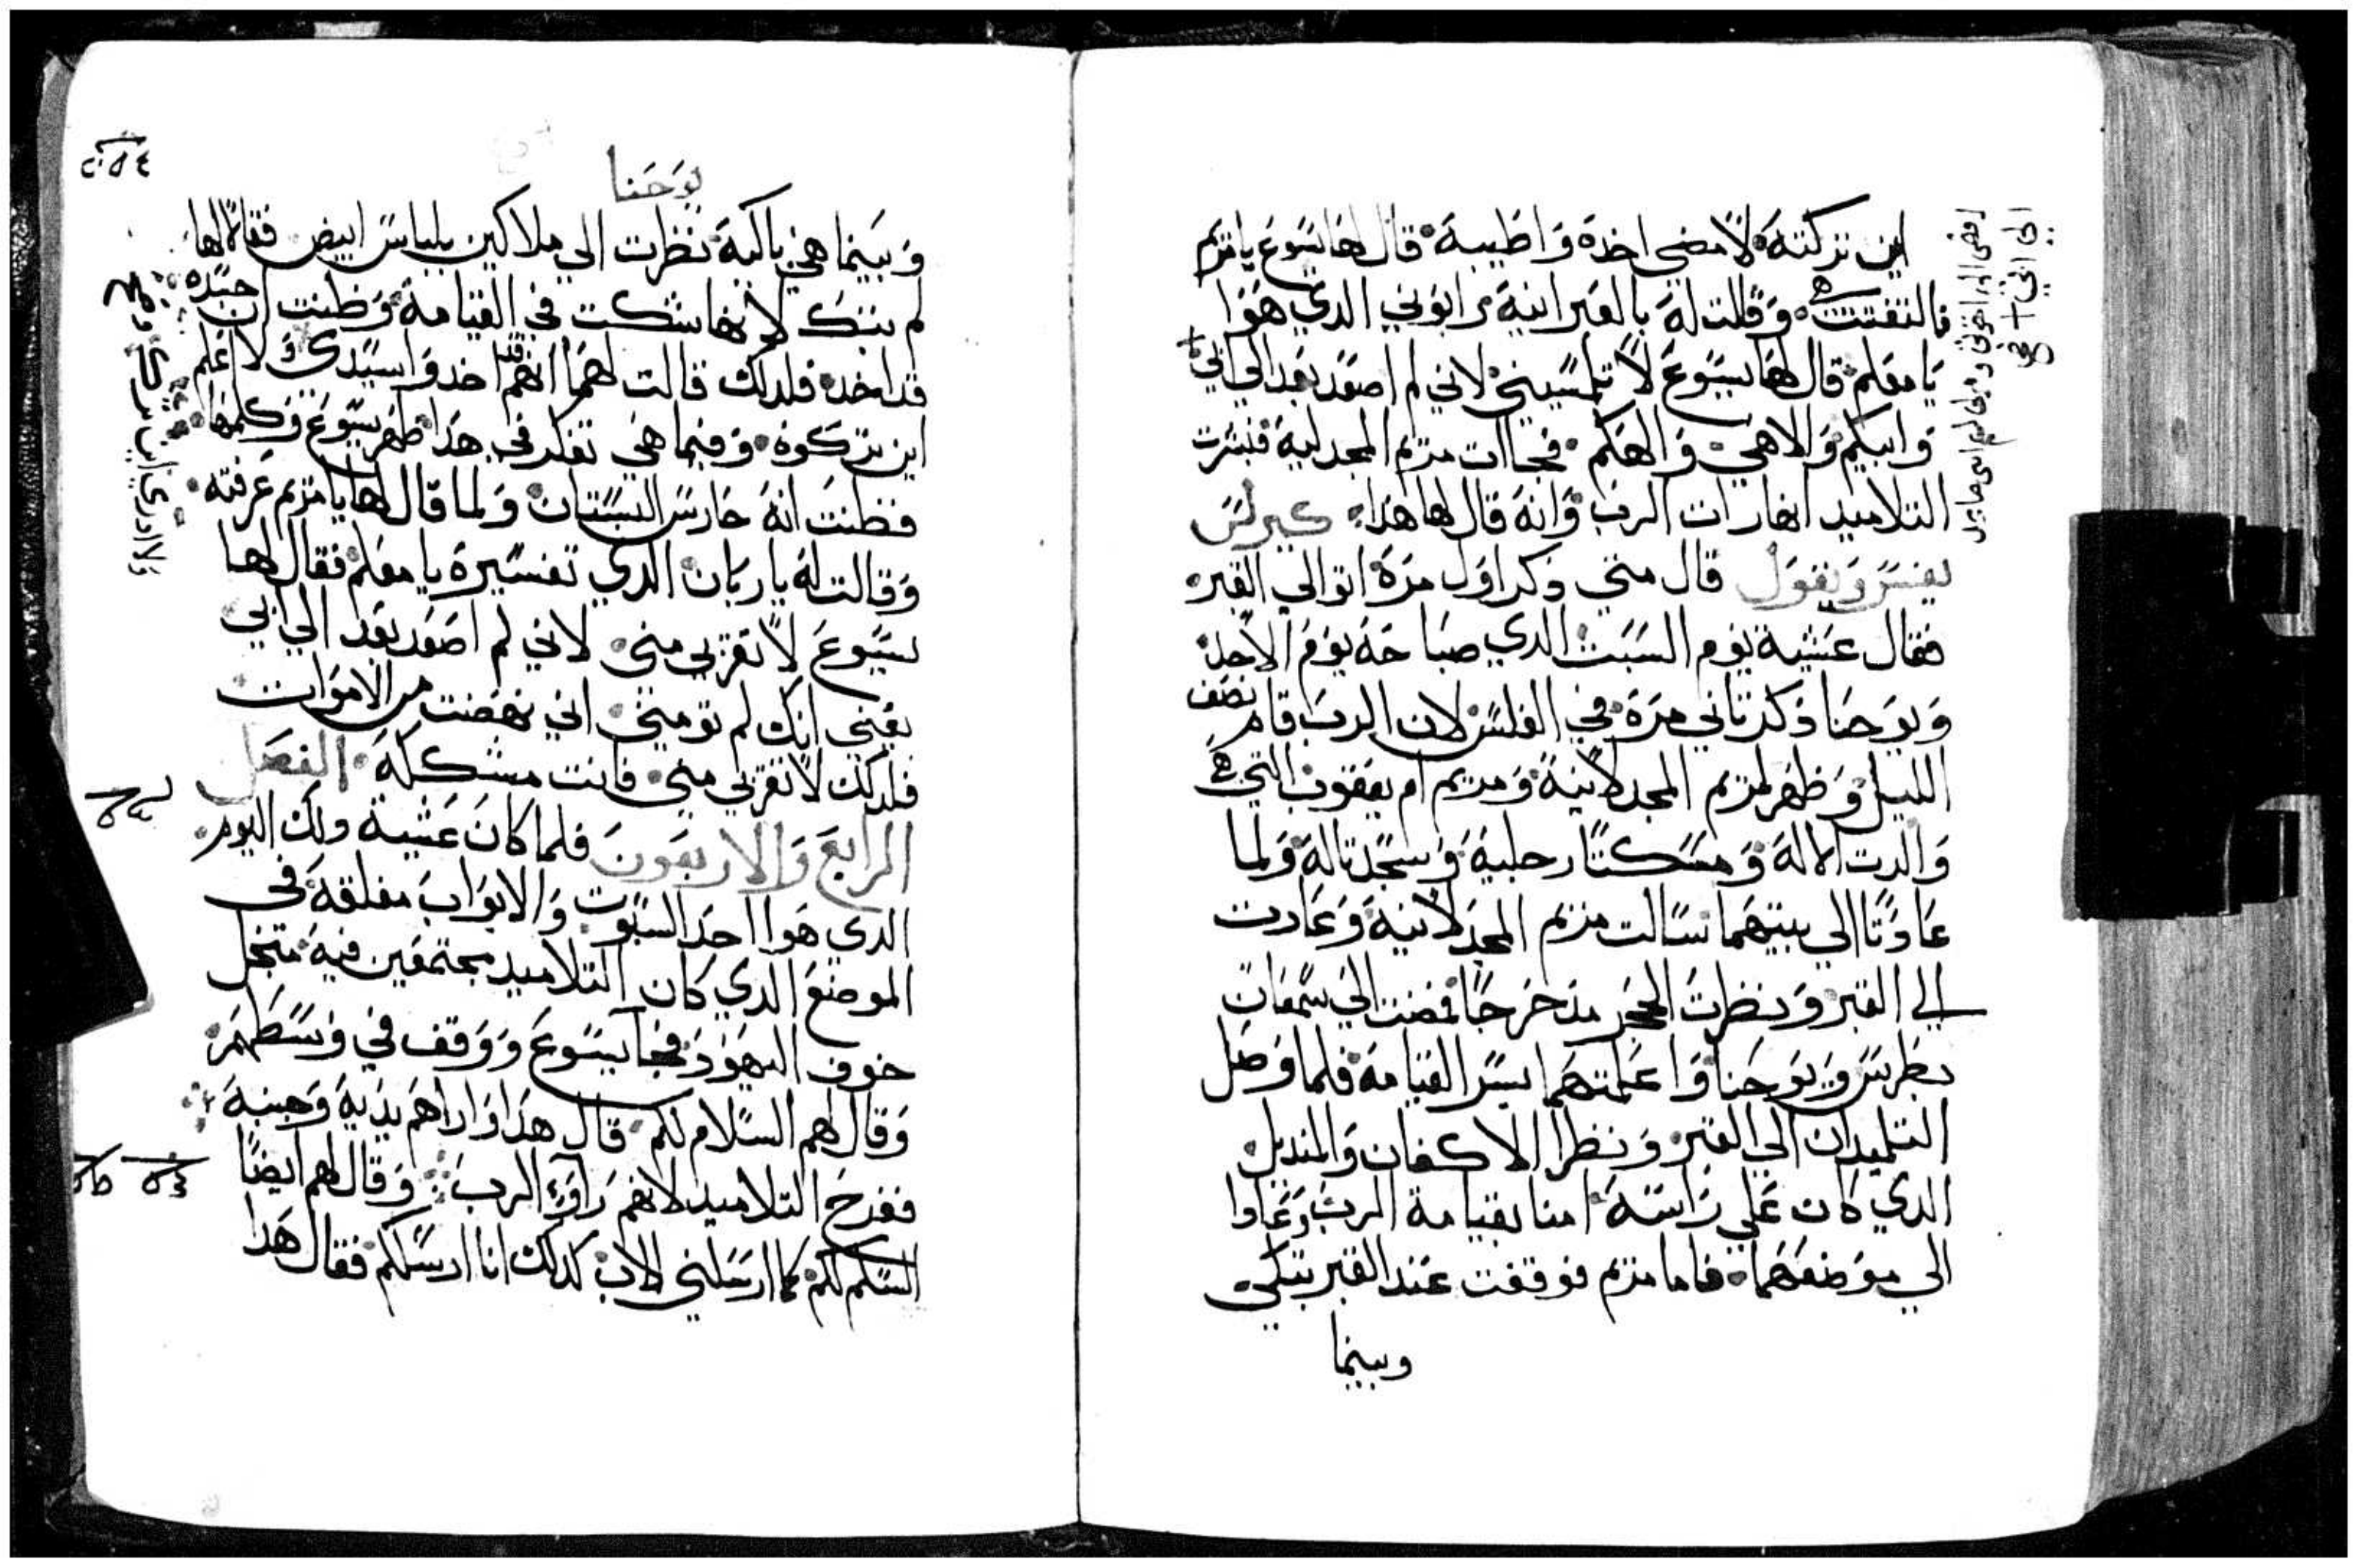 اين تركته لامضي اخده واطيبه قال لها يسوع يا مريم
فالتفتت هي وقالت له بالعبرانيه رابوني الدي هوا
يا معلم قال لها يسوع لا تلمسيني لاني لم اصعد بعد الي ابي
وابيكم والاهي والهكم فجاات مريم المجدليه فبشرت
التلاميد انها رات الرب وانه قال لها هدا كيرلس
يفسر ويقول قال متي دكر اول مرة اتوا الي القبر
فقال عشية يوم السبت الدي صباحة يوم الاحد
ويوحنا دكر تاني مرة في الغلس لان الرب قام نصف
الليل وظهر لمريم المجدلانية ومريم ام يعقوب التي هي
والدت الاله ومسكتا رجلية وسجدتا له ولما
عادتا الي بيتهما سالت مريم المجدلانية وعادت
الي القبر ونظرت الحجر مدحرجا فمضت الي سمعان
بطرس ويوحنا واعلمتهما بسر القيامة فلما وصل
التلميدان الي القبر ونظرا الاكفان والمنديل
الدي كان علي راسه امنا بقيامة الرب وعادا
الي موضعهما فاما مريم فوقفت عند القبر تبكي
وبينما
يوحنا
وبينما هي باكية نظرت الي ملاكين بلباس ابيض فقالا لها
لم تبتك لانها شكت في القيامة وظنت ان جسده
قد اخد فلدلك قالت لهما انهم قد اخدوا سيدي ولا اعلم
اين تركوة وفيما هي تفكر في هدا ظهر يسوع وكلمها
فظنت انه حارس البستان ولما قال لها يا مريم عرفته
وقالت له يا ربان الدي تفسيرة يا معلم فقال لها
يسوع لا تقربي مني لاني لم اصعد بعد الي ابي
يعني انك لم تومني اني نهضت من الاموات
فلدلك لا تقربي مني فانت مشككه الفصل
الرابع والاربعون فلما كان عشية دلك اليوم
الدي هوا احد السبوت والابواب مغلقه في
الموضع الدي كان التلاميد مجتمعين فية متجل
خوف اليهود فجا يسوع ووقف في وسطهم
وقال لهم السلام لكم قال هدا واراهم يدية وجنبه
ففرح التلاميد لانهم راوا الرب وقال لهم ايضا
السلم لكم كما ارسلني الاب كدلك انا ارسلكم فقال هدا